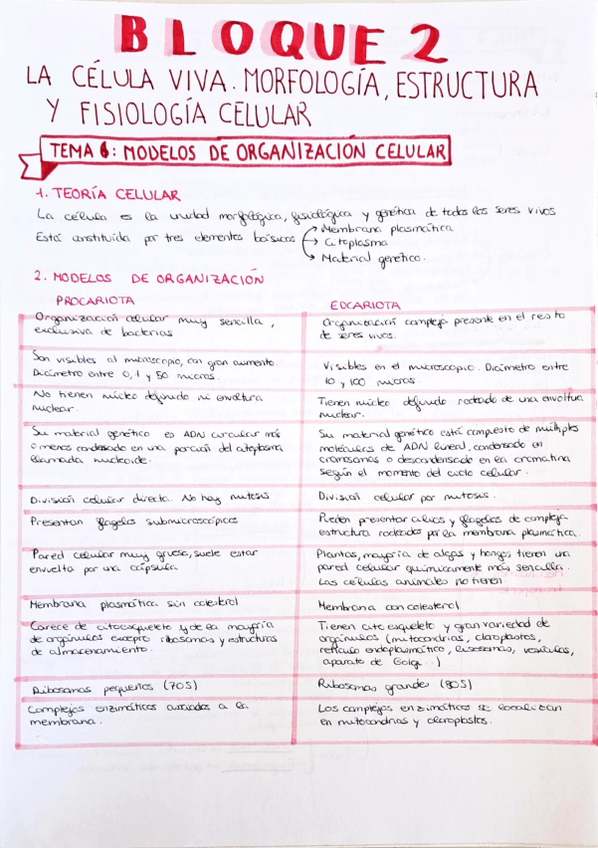 BLOQUE 2
LA CÉLULA VIVA. MORFOLOGÍA, ESTRUCTURA
Y FISIOLOGÍA CELULAR
TEMA 6: MODELOS DE ORGANIZACIÓN CELULAR
1. TEORÍA CELULAR
La célula es la unidad morfológica, fisiológica y genética de todos los seres vivos
Está constituida por tres elementos básicos
→ Membrana plasmática
→ Citoplasma
→ Material genético.
2. MODELOS DE ORGANIZACIÓN
PROCARIOTA
Organización celular muy sencilla,
exclusiva de bacterias
Son visibles al microscopio, con gran aumento.
Diámetro entre 0,1 y 50 micras.
No tienen núcleo definido ni envoltura
nuclear.
Su material genético es ADN circular más
o menos condensado en una porción del citoplasma
llamada nucleoide.
División celular directa. No hay mitosis
Presentan flagelos submicroscópicos
Pared celular muy gruesa, suele estar
envuelta por una cápsula
Membrana plasmática sin colesterol
Carece de citoesqueleto y de la mayoría
de orgánulos excepto ribosomas y estructuras
de almacenamiento.
Ribosomas pequeños (70S)
Complejos enzimáticos asociados a la
membrana.
EUCARIOTA
Organización compleja presente en el resto
de seres vivos.
Visibles en el microscopio. Diámetro entre
10 y 100 micras
Tienen núcleo definido rodeado de una envoltura
nuclear.
Su material genético está compuesto de múltiples
moléculas de ADN lineal, condensado en
cromosomas o descondensado en la cromatina
según el momento del ciclo celular.
División celular por mitosis.
Pueden presentar cilios y flagelos de compleja
estructura rodeados por la membrana plasmática.
Plantas, mayoría de algas y hongos tienen una
pared celular químicamente más sencilla.
Las células animales no tienen
Membrana con colesterol
Tienen citoesqueleto y gran variedad de
orgánulos (mitocondrias, cloroplastos,
retículo endoplasmático, lisosomas, vesículas,
aparato de Golgi...)
Ribosomas grandes (80S)
Los complejos enzimáticos se localizan
en mitocondrias y cloroplastos.